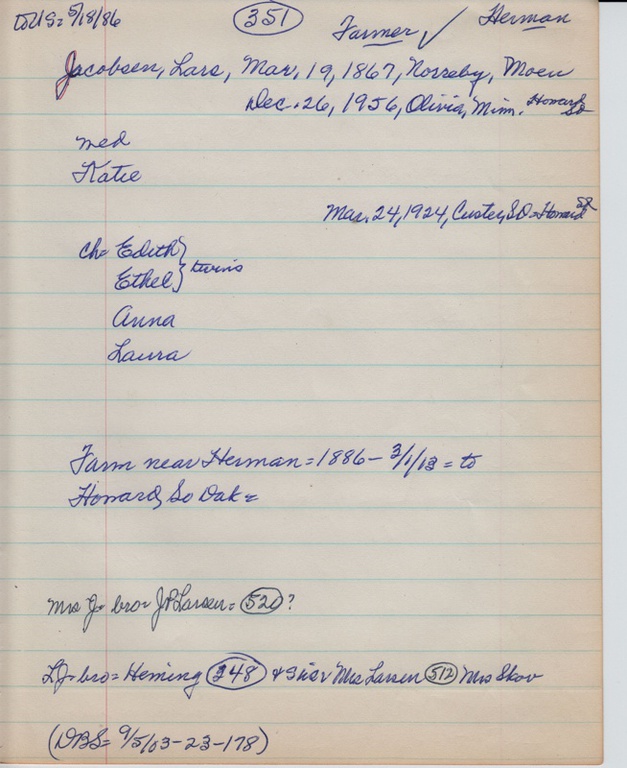 to US= 5/18/86 351 Farmer ✓ Herman
Jacobsen, Lars, Mar. 19, 1867, Norreby, Moen
Dec. 26, 1956, Olivia, Minn. Howard SD
med
Katie
Mar. 24, 1924, Custer, SD = Howard SD
ch= Edith } twins
Ethel }
Anna
Laura
Farm near Herman = 1886 - 3/1/13 = to
Howard, So Dak =
Mrs J= bro= JP Larsen = 520 ?
LJ= bro= Heming 248 & Mrs Larsen 512 Mrs Skov
(DBS= 9/5/03-23-178)